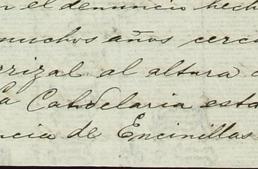 n el denuncio hech
muchos años cerca
rrizal al altura d
La Candelaria esta
ncia de Encinillas